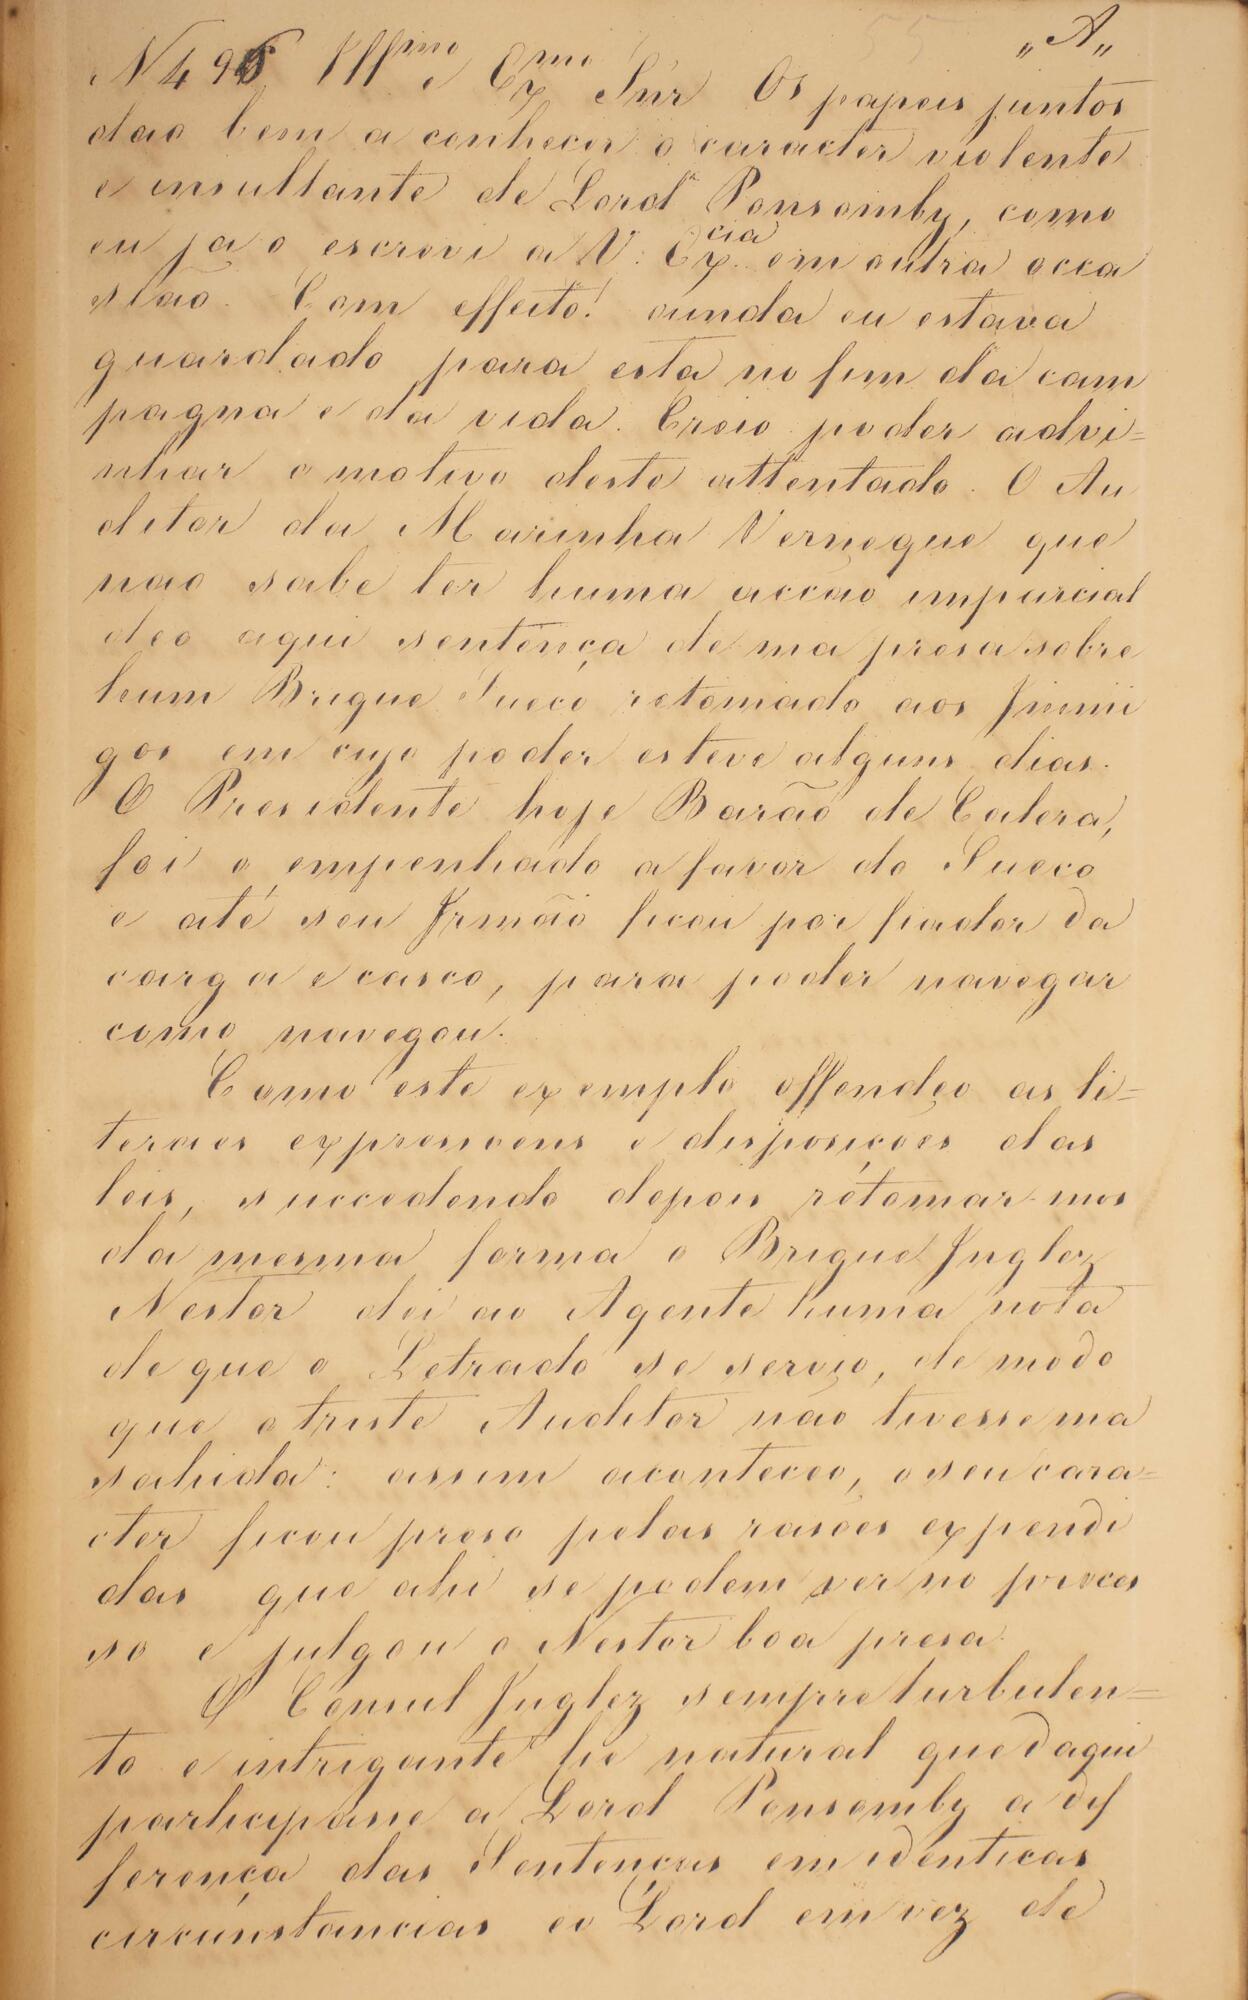 „A„
N 495 Illmo e Exmo Sñr Os papeis juntos
dao bem a conhecer o caracter violento
e insultante de Lord Ponsomby, como
eu ja o escrevi a V. Excia em outra occa
sião. Com effeito! ainda eu estava
guardado para esta no fim da cam
pagna e da vida. Creio poder advi=
nhar o motivo deste attentado. O Au
ditor da Marinha Verneque que
nao sabe ter huma accão imparcial
deo aqui sentença de ma presa sobre
hum Brigue Sueco retomado aos Jnimi
gos em cujo poder esteve alguns dias.
O Presidente hoje Barão de Calera,
foi o empenhado a favor do Sueco
e até seu Jrmão ficou por fiador da
carga e casco, para poder navegar
como navegou.
Como este exemplo offendeo as li=
teraes expressoens e disposições das
leis, succedendo depois retomar-mos
da mesma forma o Brigue Jnglez
Nestor dei ao Agente huma nota
de que o Letrado se servio, de modo
que o triste Auditor não tivesse ma
sahida: assim aconteceo, o seu cara=
cter ficou preso pelas rasões expendi
das que ahi se podem ver no proces
so e julgou o Nestor boa presa.
O Consul Jnglez sempre turbulen=
to e intrigante he natural que daqui
participasse a Lord Ponsomby a dif
ferença das Sentenças em identicas
circunstancias eo Lord em vez de